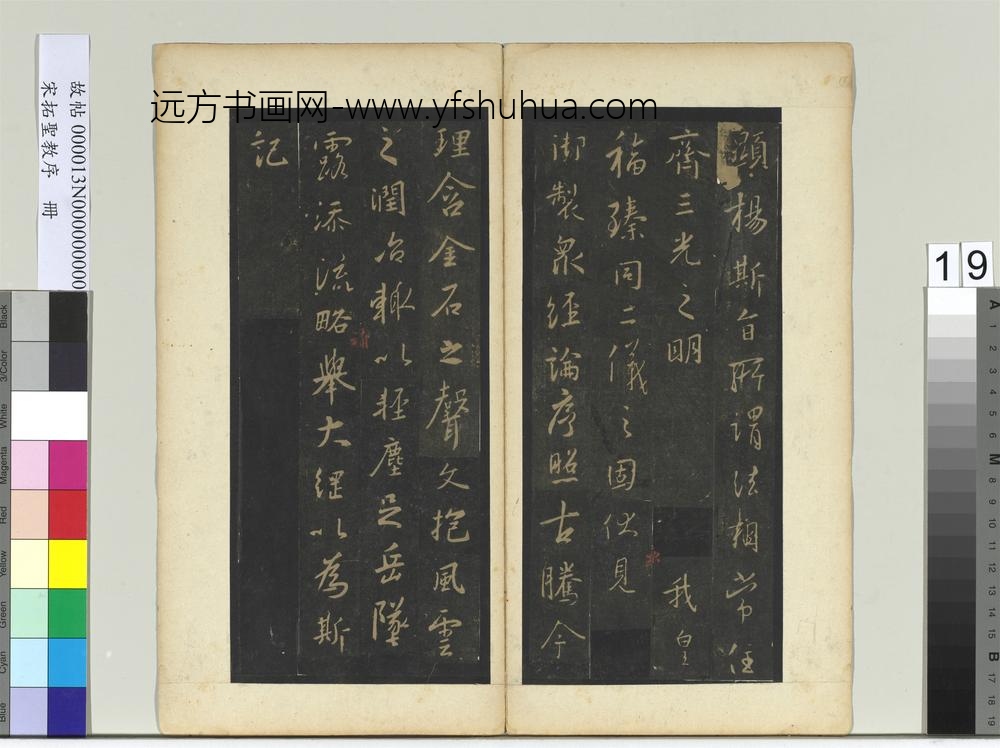 远方书画网-www.yfshuhua.com
故帖 000013N000000000
宋拓聖教序 冊
19
顯揚斯旨所謂法相常住
齊三光之明 我皇
福臻同二儀之固伏見
御製衆經論序照古騰今
理含金石之聲文抱風雲
之潤治輙以輕塵足岳墜
露添流略舉大綱以為斯
記
Black
3/Color
White
Magenta
Red
Yellow
Green
Cyan
Blue
A
1
2
3
4
5
6
M
8
9
10
11
12
13
14
15
B
17
18
19